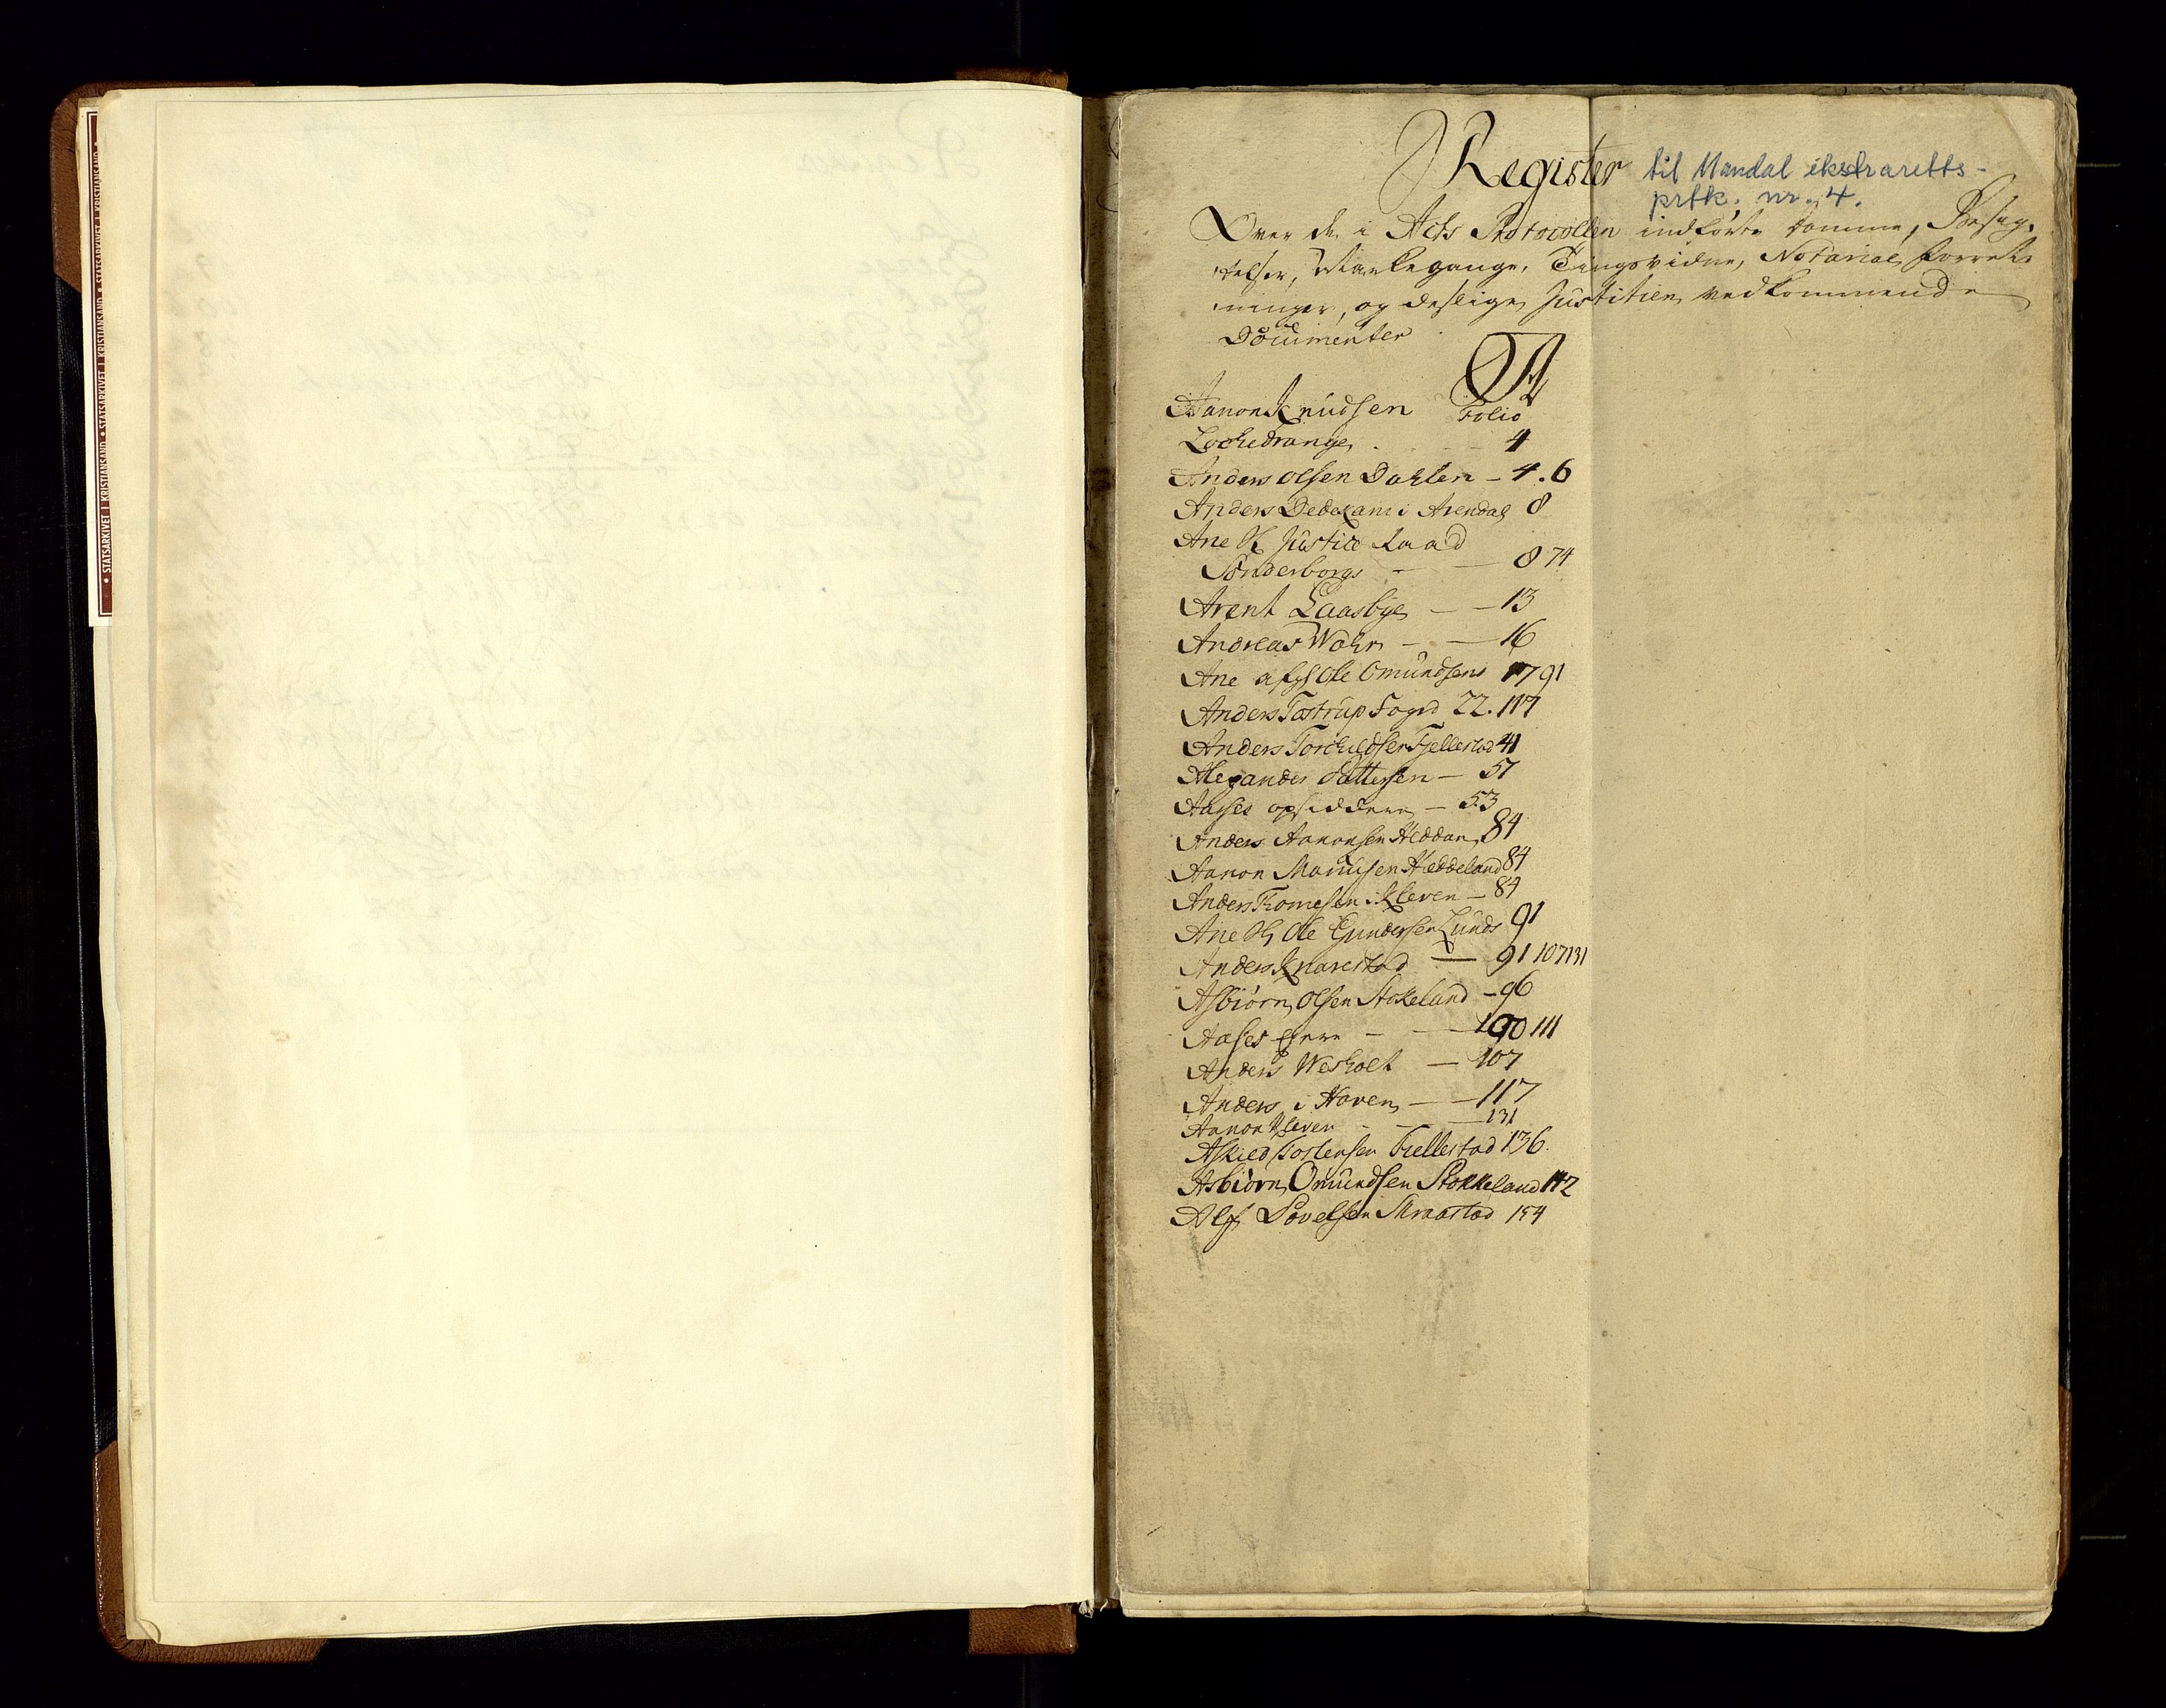 • STATSARKIVET I KRISTIANSAND • STATSARKIVET I KRISTIANSAND • STATSARKIVET I KRISTIANSAND •
Register til Mandal ekstraretts-
prtk. nr. 4.
Over de i Acts Protocollen indførte Domme, Besig-
telser, Mærkegange, Tingsvidne, Notarial forret-
ninger, og deslige Justitien vedkommende
Documenter
A
Aanon Knudsen Folio
4
Anders Olsen Dahlen – 4. 6
Anders Dedekam i Arendal 8
Ane Sl Justice Raad
Sønderborgs – – 8 74
Arent Laasbye – – 13
Andreas Wohr – – 16
Ane afg: Ole Omundsens 17 91
Anders Tostrup Foged 22. 117
Anders Torchildsen Fjellestad 41
Alexander Pattersen – 57
Aases opsiddere – 53
Anders Aanonsen Heddan 84
Aanon Heddeland 84
Anders Thomesen i Kleven – 84
Ane Sl Ole Gundersen Lunds 91
Anders Knarestad — 91 107 131
Asbiørn Olsen Stokeland – 96
Aases Eyere – – 100 111
Anders Wesholt – 107
Anders i Haven – – 117
Aanon Kleven – – 131
Askied Tostensen Fiellestad 136.
Asbiørn Omundsen Stokkeland 142
Alf Sovelsen 154